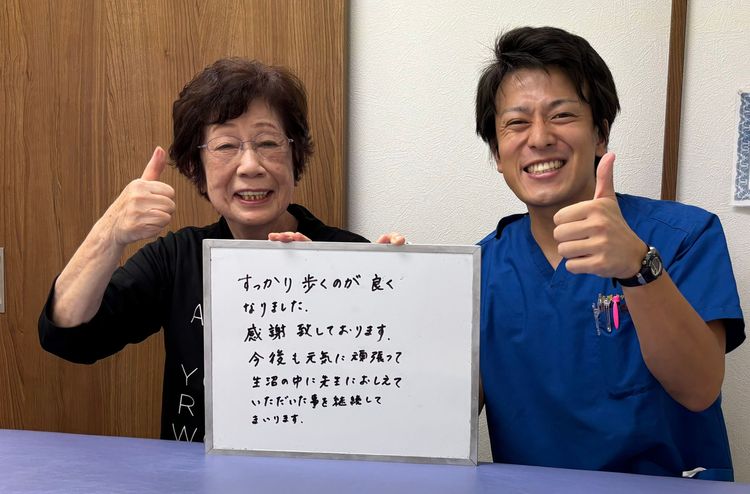 すっかり歩くのが良く
なりました.
感謝致しております.
今後も元気に頑張って
生活の中に先生におしえて
いただいた事を継続して
まいります.
A
Y
R
W